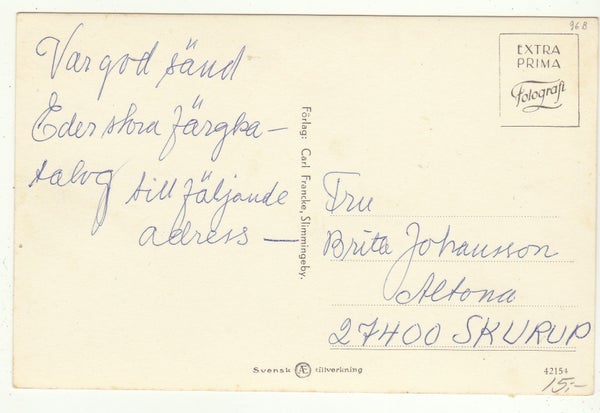 96 B
EXTRA
PRIMA
Fotografi
Var god sänd
Eder stora färgka-
talog till följande
adress —
Förlag: Carl Francke, Slimmingeby.
Fru
Brita Johansson
Altona
27400 SKURUP
Svensk Æ tillverkning
42154
15:-